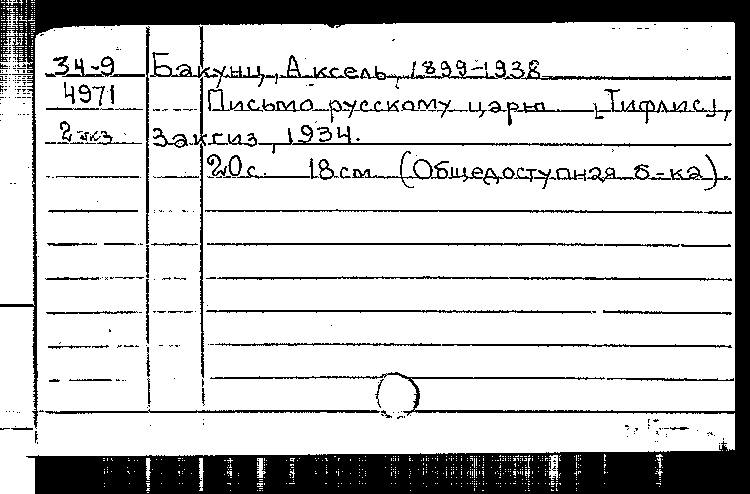 34-9 Бакунц, Аксель, 1899-1938
4971 Письмо русскому царю [Тифлис],
2 экз Закгиз, 1934.
20 с. 18 см (Общедоступная б-ка).